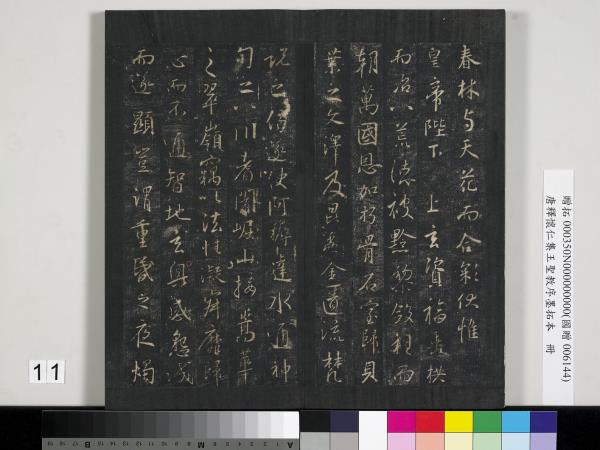 春林与天花而合彩伏惟
皇帝陛下 上玄資福垂拱
而治八荒德被黔黎斂衽而
朝萬國恩加朽骨石室歸貝
葉之文澤及昆蟲金匱流梵
說之偈遂使阿耨達水通神
甸之八川耆闍崛山接嵩華
之翠嶺竊以法性凝寂靡歸
心而不通智地玄奧感懇誠
而遂顯豈謂重昏之夜燭
贈拓 000350N000000000(國贈 006144)
唐釋懷仁集王聖教序墨拓本 冊
11
A 1 2 3 4 5 6 M 8 9 10 11 12 13 14 15 B 17 18 19